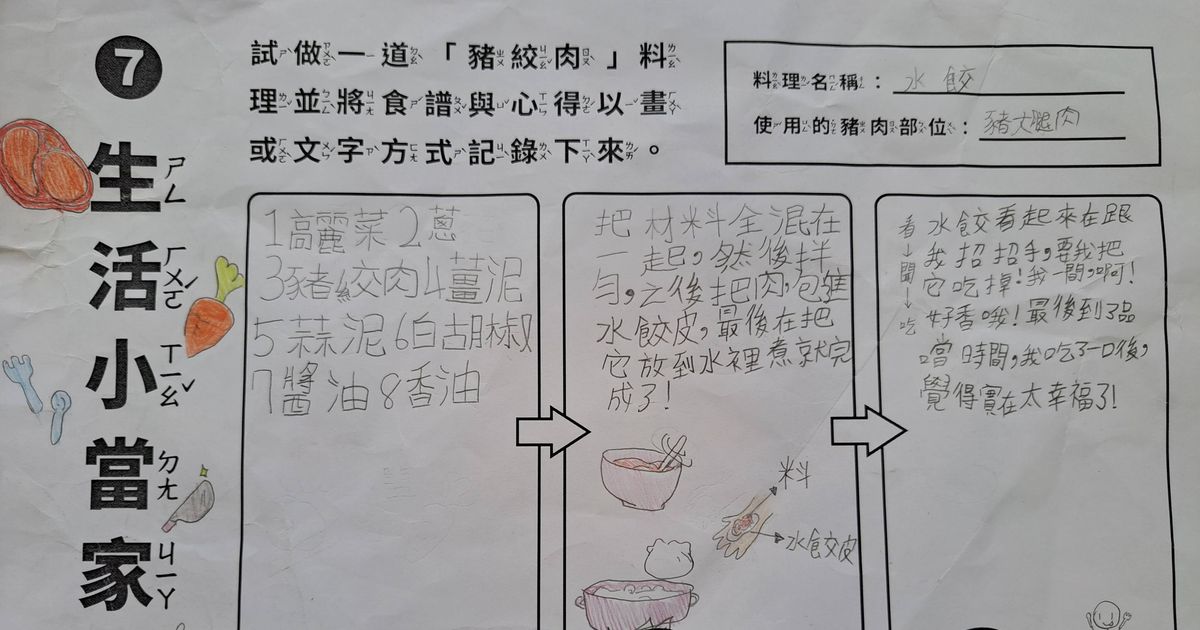 7
生活小當家
ㄕㄥ ㄏㄨㄛˊ ㄒㄧㄠˇ ㄉㄤ ㄐㄧㄚ
試做一道「豬絞肉」料
理並將食譜與心得以畫
或文字方式記錄下來。
料理名稱：水餃
使用的豬肉部位：豬大腿肉
1高麗菜2蔥
3豬絞肉4薑泥
5蒜泥6白胡椒
7醬油8香油
把材料全混在
一起，然後拌
勻，之後把肉包進
水餃皮，最後在把
它放到水裡煮就完
成了！
料
水餃皮
看→聞→吃
水餃看起來在跟
我招招手，要我把
它吃掉！我一聞，啊！
好香哦！最後到了品
嚐時間，我吃了一口後，
覺得實在太幸福了！